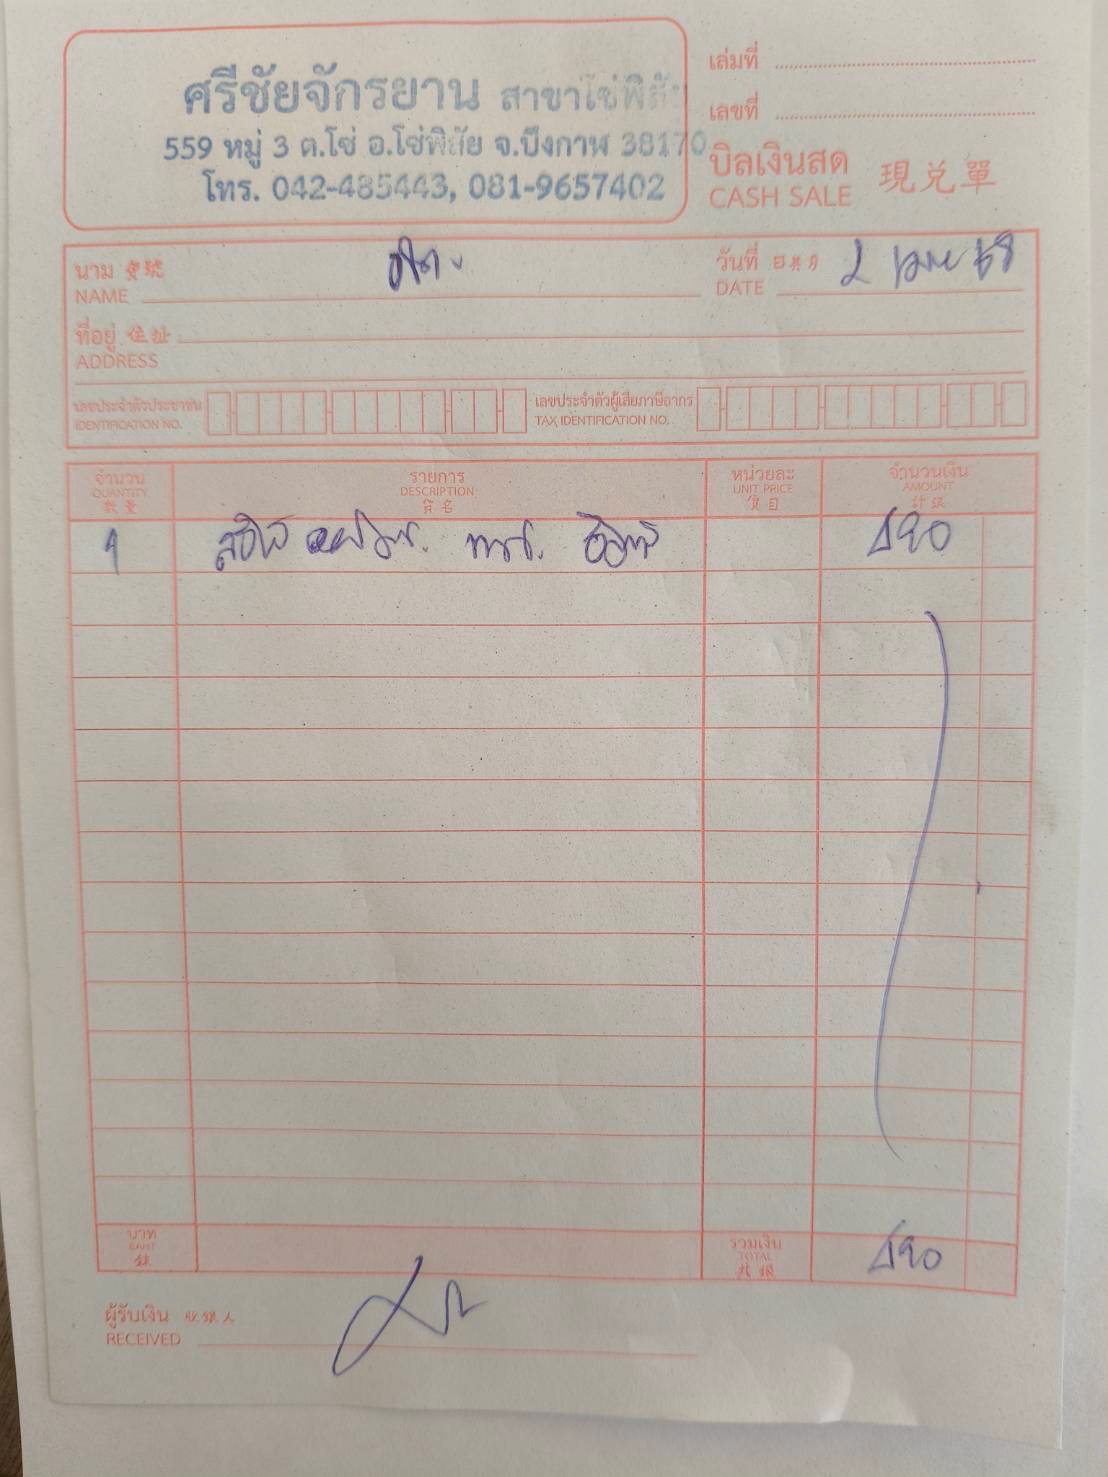 ศรีชัยจักรยาน สาขาโซ่พิสัย
559 หมู่ 3 ต.โซ่ อ.โซ่พิสัย จ.บึงกาฬ 38170
โทร. 042-485443, 081-9657402
เล่มที่
เลขที่
บิลเงินสด 現兌單
CASH SALE
นาม 寶號
NAME
วันที่ 日月 2 เมษ 68
DATE
ที่อยู่ 住址
ADDRESS
เลขประจำตัวประชาชน
IDENTIFICATION NO.
เลขประจำตัวผู้เสียภาษีอากร
TAX IDENTIFICATION NO.
จำนวน รายการ หน่วยละ จำนวนเงิน
QUANTITY DESCRIPTION UNIT PRICE AMOUNT
數量 貨名 價目 計銀
1 490
บาท รวมเงิน 490
BAHT TOTAL
銖 共銀
ผู้รับเงิน 收銀人
RECEIVED